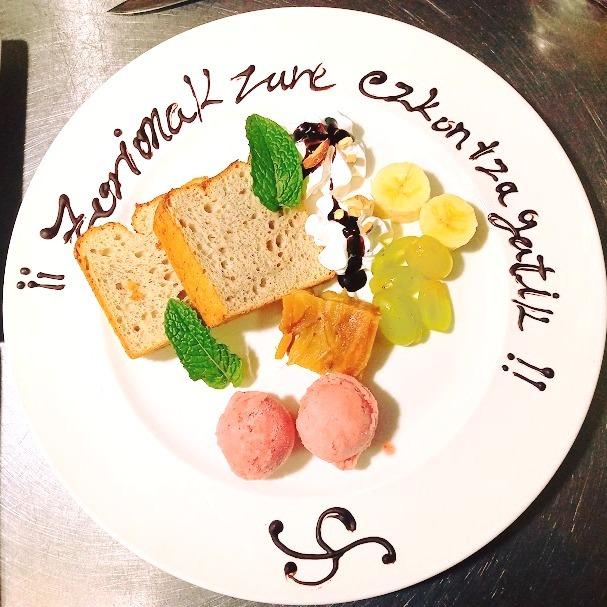 ¡¡ Zorionak zure ezkontzagatik !!